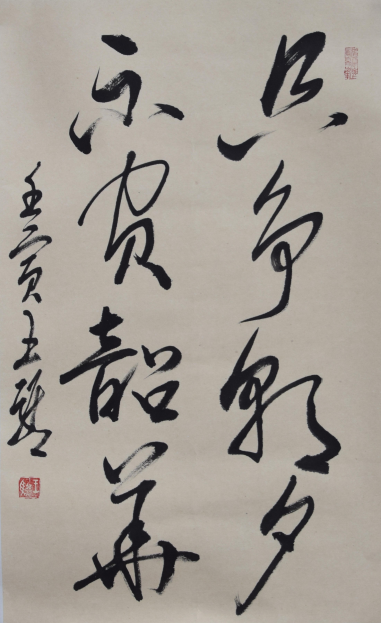 只争朝夕
不負韶華
壬寅王